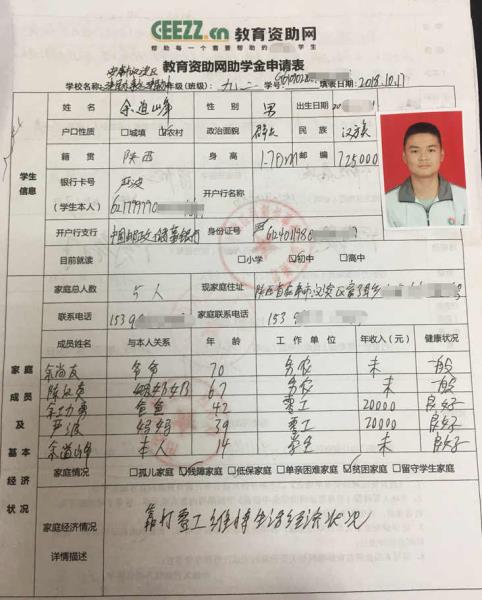 GEEZZ.cn 教育资助网
帮助每一个需要帮助的 学生
教育资助网助学金申请表
学校名称: 年级(班级): 九二 学号: 填表日期: 2018.10.17
学生信息
姓名 余道山峰 性别 男 出生日期 20
户口性质 □城镇 ☑农村 政治面貌 群众 民族 汉族
籍贯 陕西 身高 1.70m 邮编 725000
银行卡号 严波 开户行名称
(学生本人) 621799770
开户行支行 中国邮政储蓄银行 身份证号 612401980
目前就读 □小学 ☑初中 □高中
家庭总人数 5人 现家庭住址 陕西省安康市汉滨区
联系电话 153 家庭联系电话 153
家庭成员及基本经济状况
成员姓名 与本人关系 年龄 工作单位 年收入(元) 健康状况
余尚友 爷爷 70 务农 未 一般
陈 奶奶 67 务农 未 一般
余 爸爸 42 零工 20000 良好
严波 妈妈 39 零工 20000 良好
余道山峰 本人 14 学生 未 良好
家庭情况 □孤儿家庭 ☑残障家庭 □低保家庭 □单亲困难家庭 ☑贫困家庭 □留守学生家庭
家庭经济情况
详情描述
靠打零工维持生活经济状况